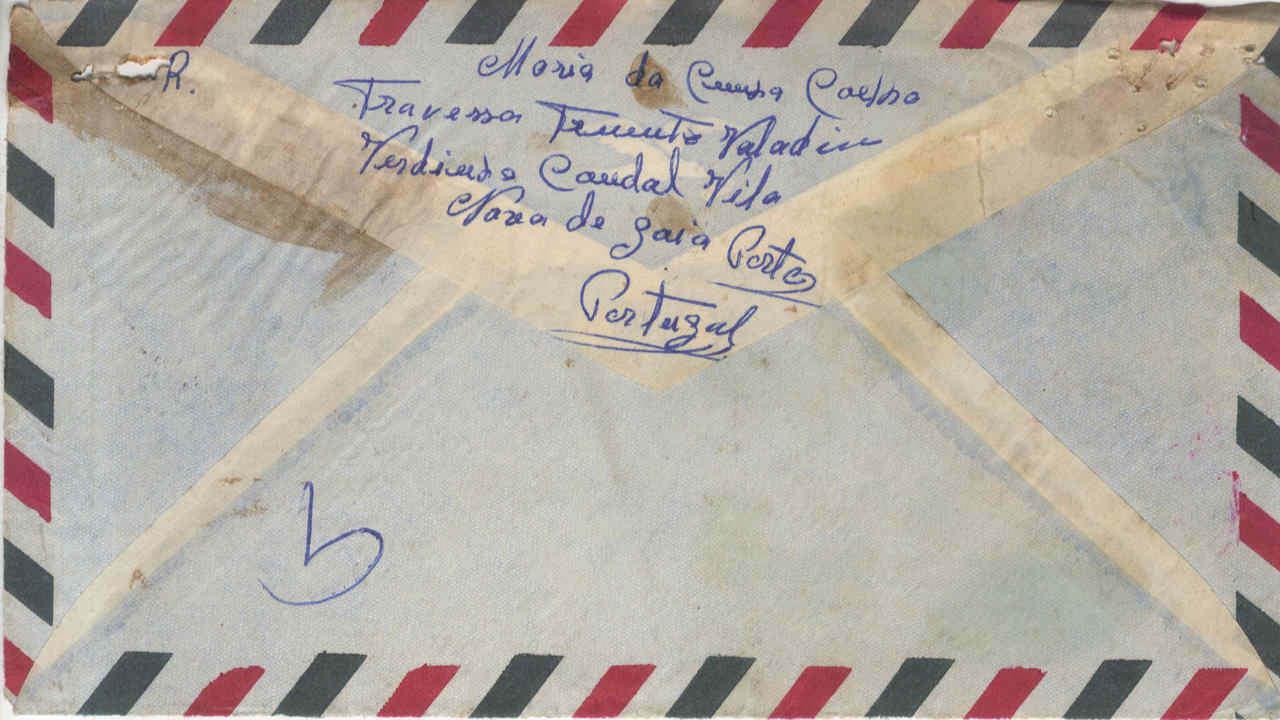 R.
Maria da
Travessa Tenente Valadim
Candal Vila
Nova de gaia Porto
Portugal